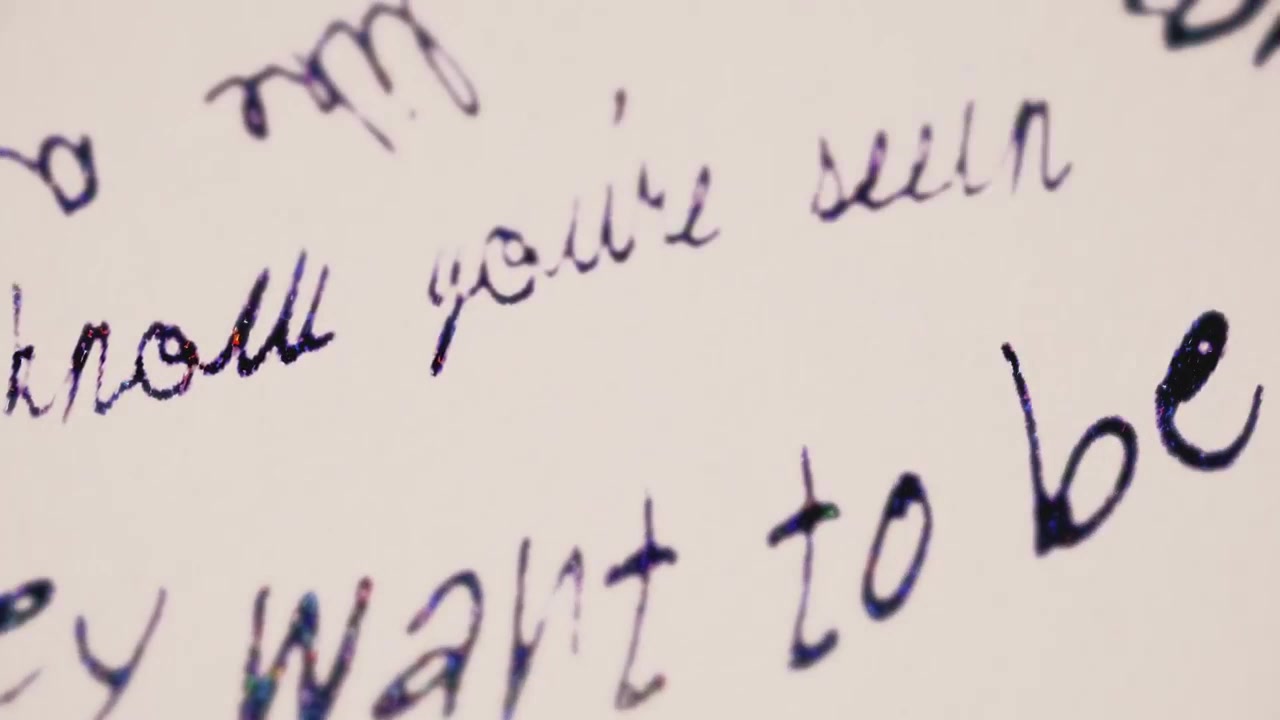 know you've seen
ey want to be